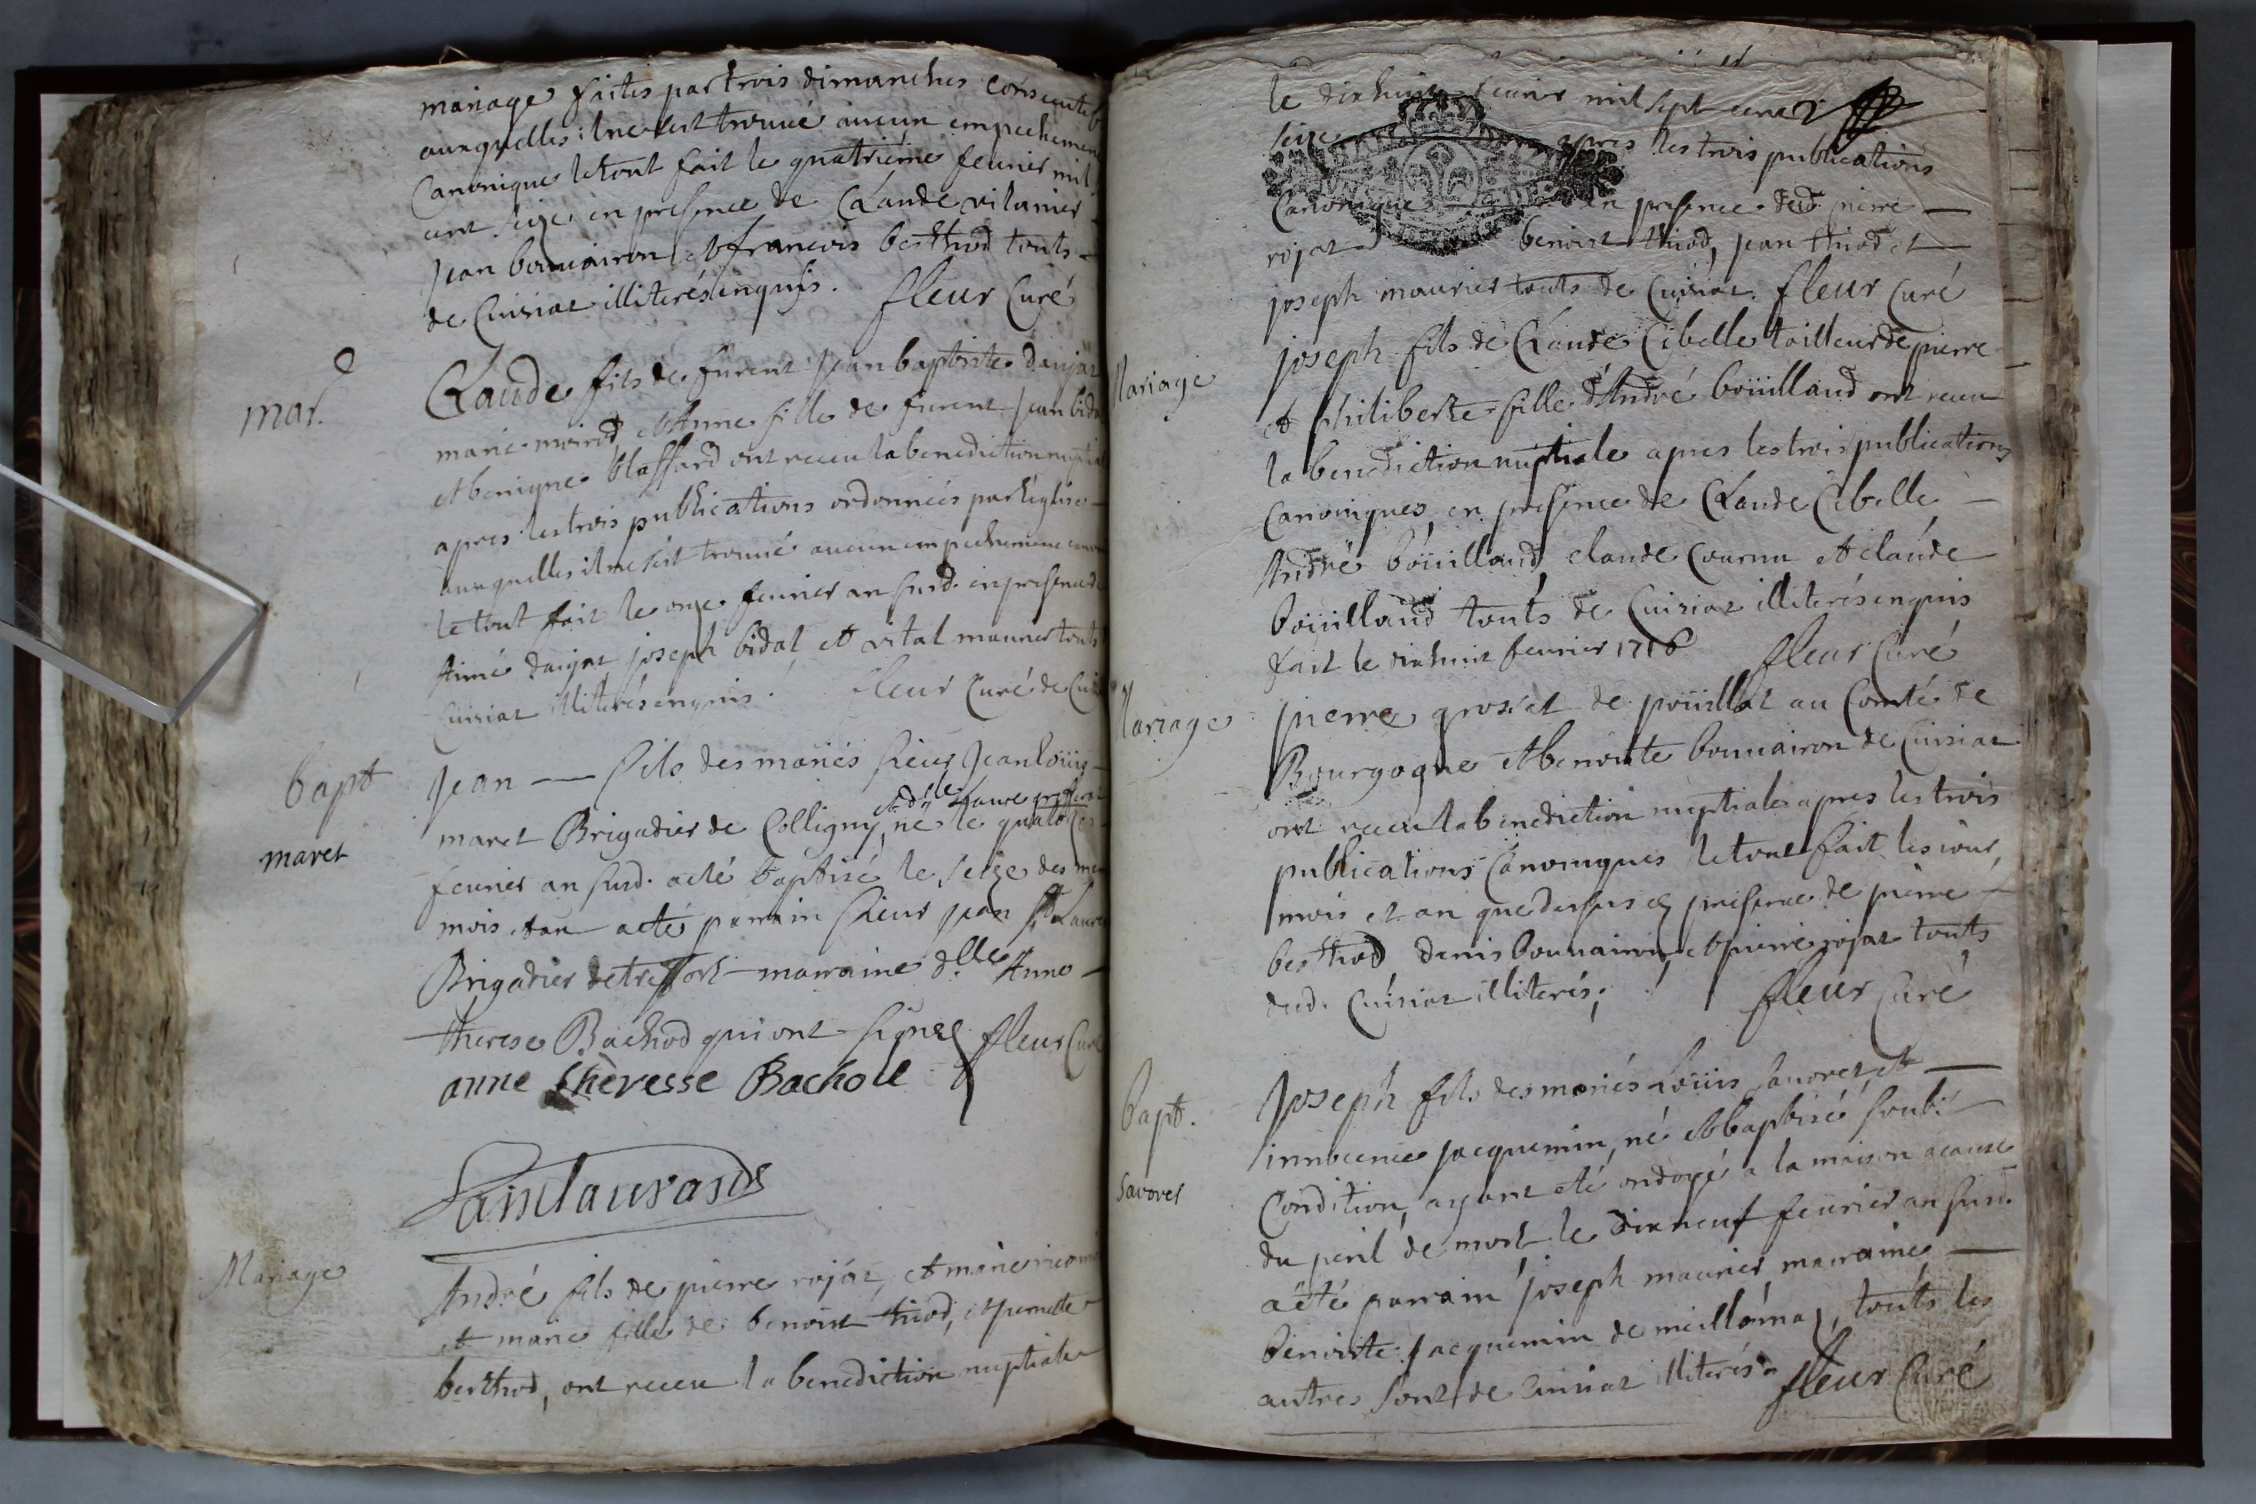 mariage faites par trois dimanches
auxquelles il ne s'est trouvé aucun empechement
Canonique le tout fait le quatriéme feurier mil
cent seize en presence de Claude vilanier
Jean bouuairon et francois berthod touts
de Cuisiat illiterés enquis. fleur Curé
mar.
Claude fils de furent Jean baptiste daujat
marie moirod et Anne fille de furent Jean bidal
et benigne blaffard ont receu la benediction nuptiale
apres les trois publications ordonnées par l'eglise
auxquelles il ne s'est trouué aucun empechement
le tout fait le onze feurier an susd. en presence de
Aimé daujat joseph bidal et vital maurier touts
Cuisiat illiterés enquis. fleur Curé de
bapt
maret
Jean — fils des mariés sieur Jean loüis
et dlle
maret Brigadier de Colligny né le quatorze
feurier an susd. a eté baptisé le seize des
mois et an a eté parrain sieur jean St Laurent
Brigadier de treffort marraine dlle Anne
therese Bachod qui ont signez fleur Curé
anne thèresse Bachoil
Sainlaurand
Mariage
André fils de pierre rojat, et marie
et marie fille de benoist thiod, et pernette
berthod, ont receu la benediction nuptiale
le dixhuit feurier mil sept cent
seize apres les trois publications
Canoniques en presence dud pierre
rojat benoist thiod, jean thiod et
joseph maurier touts de Cuisiat. fleur Curé
Mariage
joseph fils de Claude Cibelle tailleur de pierre
et philiberte fille d'André boüilland ont receu
la benediction nuptiale apres les trois publications
Canoniques, en presence de Claude Cibelle
André boüilland claude Cournu et claude
boüilland touts de Cuisiat illiterés enquis
fait le dixhuit feurier 1716 fleur Curé
Mariage
pierre grosset de poüillat au Comté de
Bourgogne et benoite bouuairon de Cuisiat
ont receu la benediction nuptiale apres les trois
publications Canoniques le tout fait les iour,
mois et an que dessus en presence de pierre
berthod denis bouuairon, et pierre rojat touts
dud. Cuisiat illiterés; fleur Curé
bapt.
Savoret
Joseph fils des mariés Loüis Sauoret et
innocence jacquemin, né et baptisé soub
Condition, ayant eté ondoyé a la maison a cause
du peril de mort le dixneuf feurier an susd.
a eté parrain joseph maurier marraine
benoiste jacquemin de meillona, touts les
autres sont de Cuisiat illiterés fleur Curé